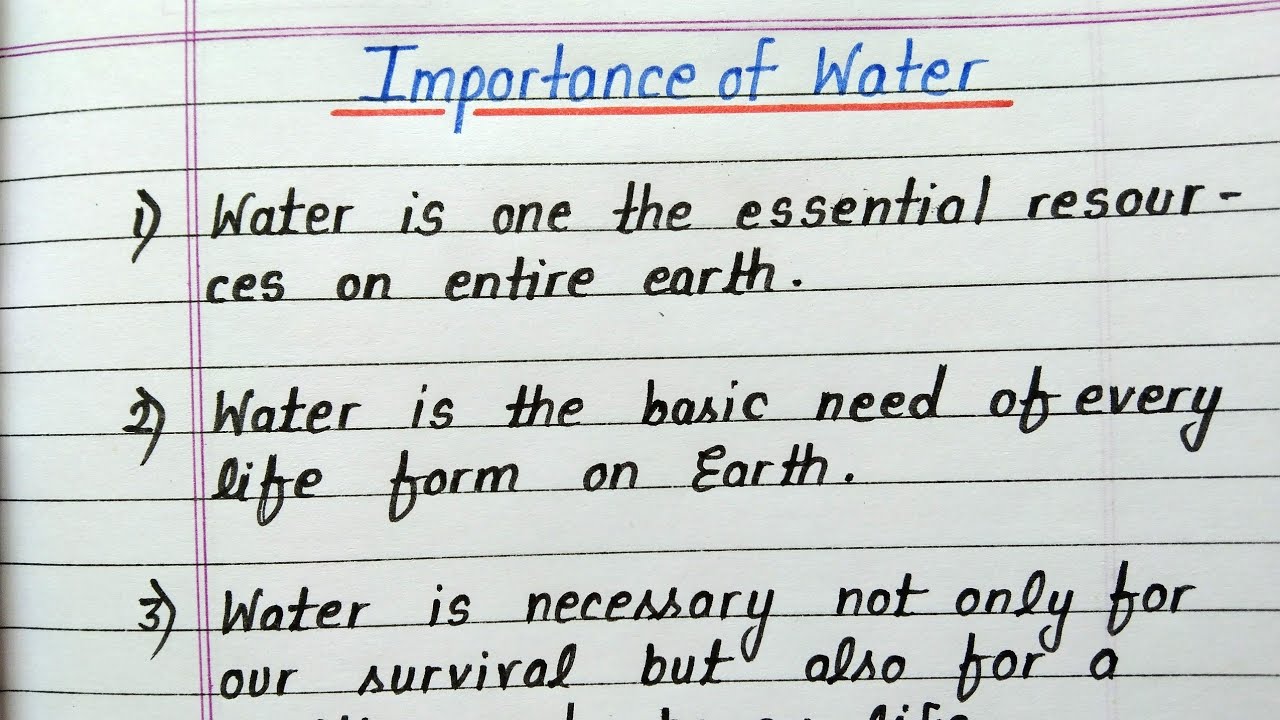 Importance of Water
1) Water is one the essential resour-
ces on entire earth.
2) Water is the basic need of every
life form on Earth.
3) Water is necessary not only for
our survival but also for a
life